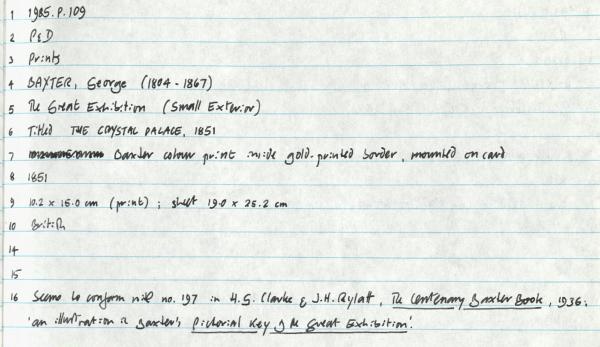 1 1985.P.109
2 P&D
3 Prints
4 BAXTER, George (1804-1867)
5 The Great Exhibition (Small Exterior)
6 Titled THE CRYSTAL PALACE, 1851
7 Baxter colour print inside gold-printed border, mounted on card
8 1851
9 10.2 x 15.0 cm (print); sheet 19.0 x 25.2 cm
10 British
14
15
16 Seems to conform with no. 197 in H.G. Clarke & J.H. Rylatt, The Centenary Baxter Book, 1936,
'an illustration in Baxter's Pictorial Key of the Great Exhibition'.